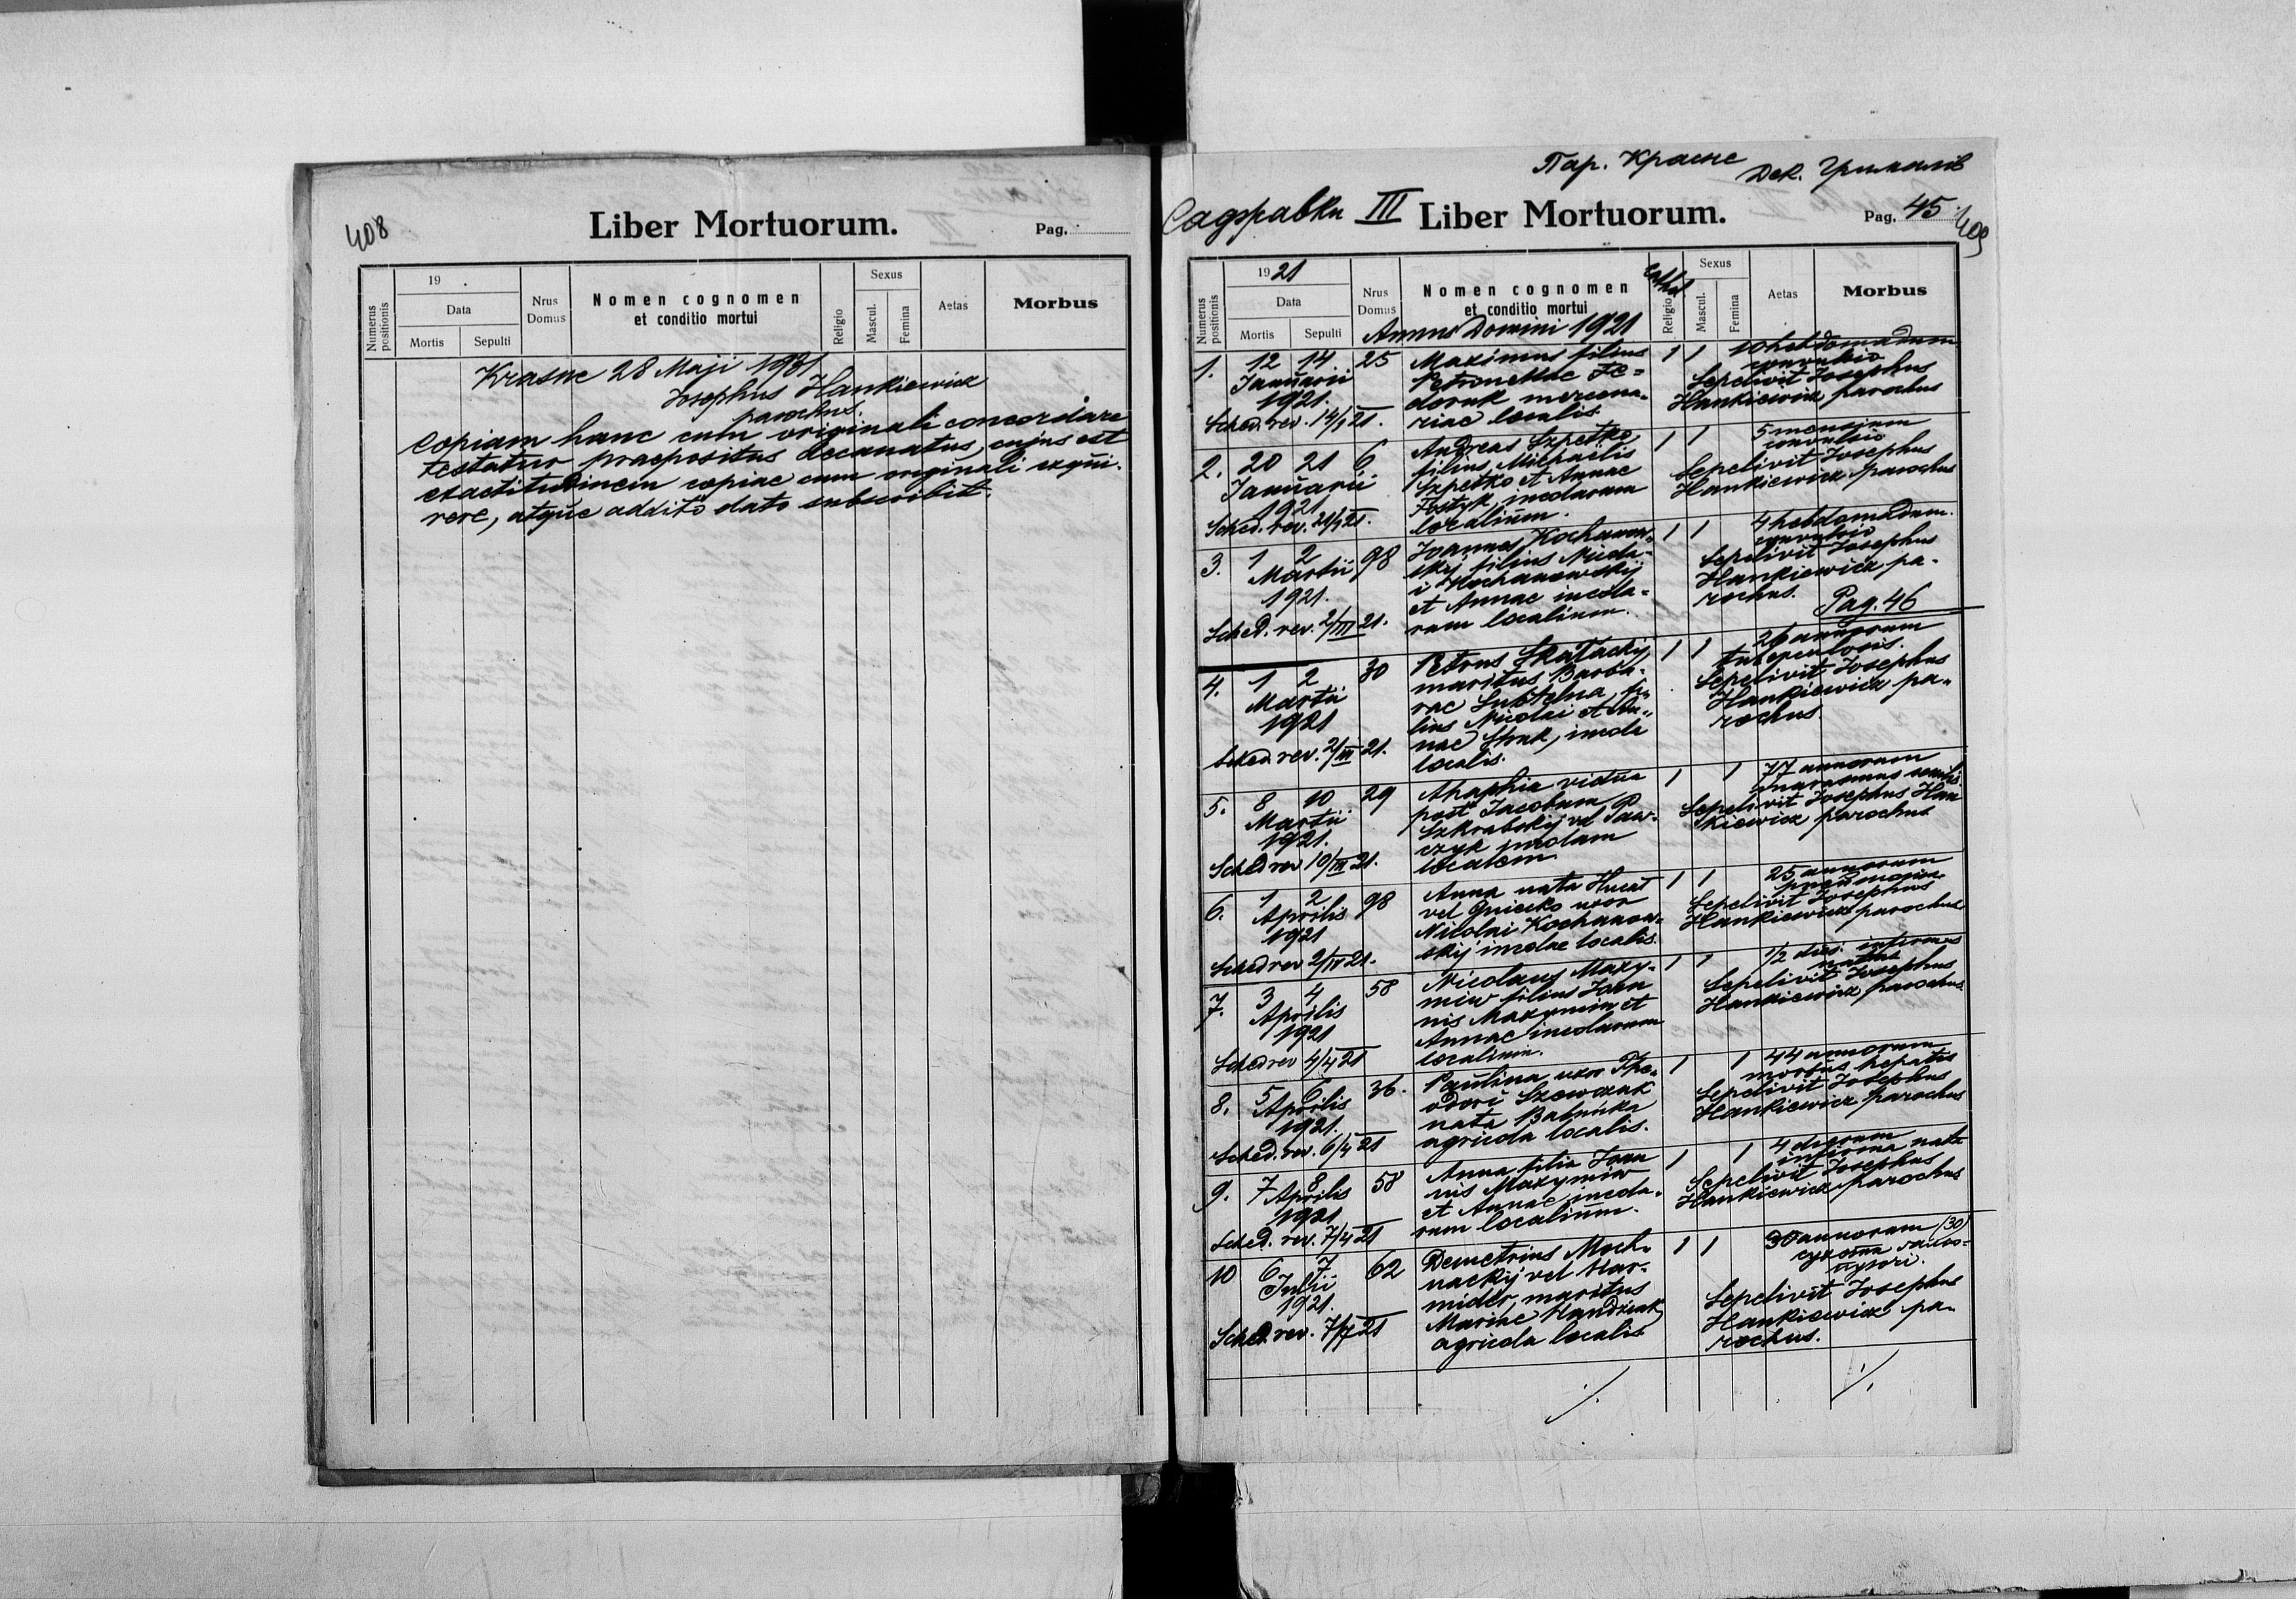 408
Liber Mortuorum.
Pag.
Numerus positionis
19 .
Data
Mortis
Sepulti
Nrus Domus
Nomen cognomen
et conditio mortui
Religio
Sexus
Mascul.
Femina
Aetas
Morbus
Krasne 28 Maji 1931
Josephus Hankiewicz
parochus.
Copiam hanc cum originali concordare
testatur praepositus decanatus, cujus est
exactitudinem copiae cum originali exqui-
rere, atque addito dato subscribit.
Пар. Красне Дек. Грималів
Садзавки III Liber Mortuorum.
Pag. 45
409
Numerus positionis
1921
Data
Mortis
Sepulti
Nrus Domus
Nomen cognomen
et conditio mortui
Religio
Sexus
Mascul.
Femina
Aetas
Morbus
Annus Domini 1921
1. 12 14 25 Maximus filius 1 1 10 hebdomadum
Januarii Petronellae Fe= convulsio
1921. doruk mercena- Sepelivit Josephus
Sched. rev. 14/I 21. riae localis. Hankiewicz parochus
2. 20 21 6 Andreas Szpetko 1 1 5 mensium
Januarii filius Michaelis convulsio
1921 Szpetko et Annae Sepelivit Josephus
Fostyk, incolarum Hankiewicz parochus
Sched. rev. 21/I 21. localium.
3. 1 2 98 Joannes Kochanow- 1 1 4 hebdomadum.
Martii skij filius Nicola- convulsio
1921. i Kochanowskij Sepelivit Josephus
et Annae incola- Hankiewicz pa-
Sched. rev. 2/III 21. rum localium. rochus.
Pag. 46
4. 1 2 30 Petrus 1 1 26 annorum
Martii maritus Barba- tuberculosis.
1921 rae fi- Sepelivit Josephus
lius Nicolai et An- Hankiewicz pa-
Sched. rev. 2/III 21. nae incola rochus.
localis.
5. 8 10 29 Ahaphia vidua 1 1 77 annorum
Martii post Jacobum marasmus senilis
1921. Szkrabskij vel Sepelivit Josephus Han
incolam kiewicz parochus
Sched rev 10/III 21. localem
6. 1 2 98 Anna nata 1 1 25 annorum
Aprilis vel uxor
1921 Nicolai Kochanow- Sepelivit Josephus
Sched rev 2/IV 21. skij incolae localis. Hankiewicz parochus
7. 3 4 58 Nicolaus Maxy- 1 1 1/2 diei infirmus
Aprilis miw filius Joan natus
1921 nis Maxymiw et Sepelivit Josephus
Annae incolarum Hankiewicz parochus
Sched rev 4/4 21 localium.
8. 5 6 36. Paulina uxor The- 1 1 44 annorum
Aprilis odori Szewczuk morbus hepatis
1921. nata Sepelivit Josephus
Sched. rev. 6/4 21 agricola localis. Hankiewicz parochus
9. 7 8 58 Anna filia Joan 1 1 4 dierum
Aprilis nis Maxymiw infirma nata
1921 et Annae incola- Sepelivit Josephus
Sched. rev. 7/4 21 rum localium. Hankiewicz parochus
10 6 7 62 Demetrius Moch- 1 1 30 annorum (30)
Julii nackij vel Har-
1921. mider, maritus
Mariae Handziuk Sepelivit Josephus
Sched. rev. 7/7 21 agricola localis Hankiewicz pa-
rochus.